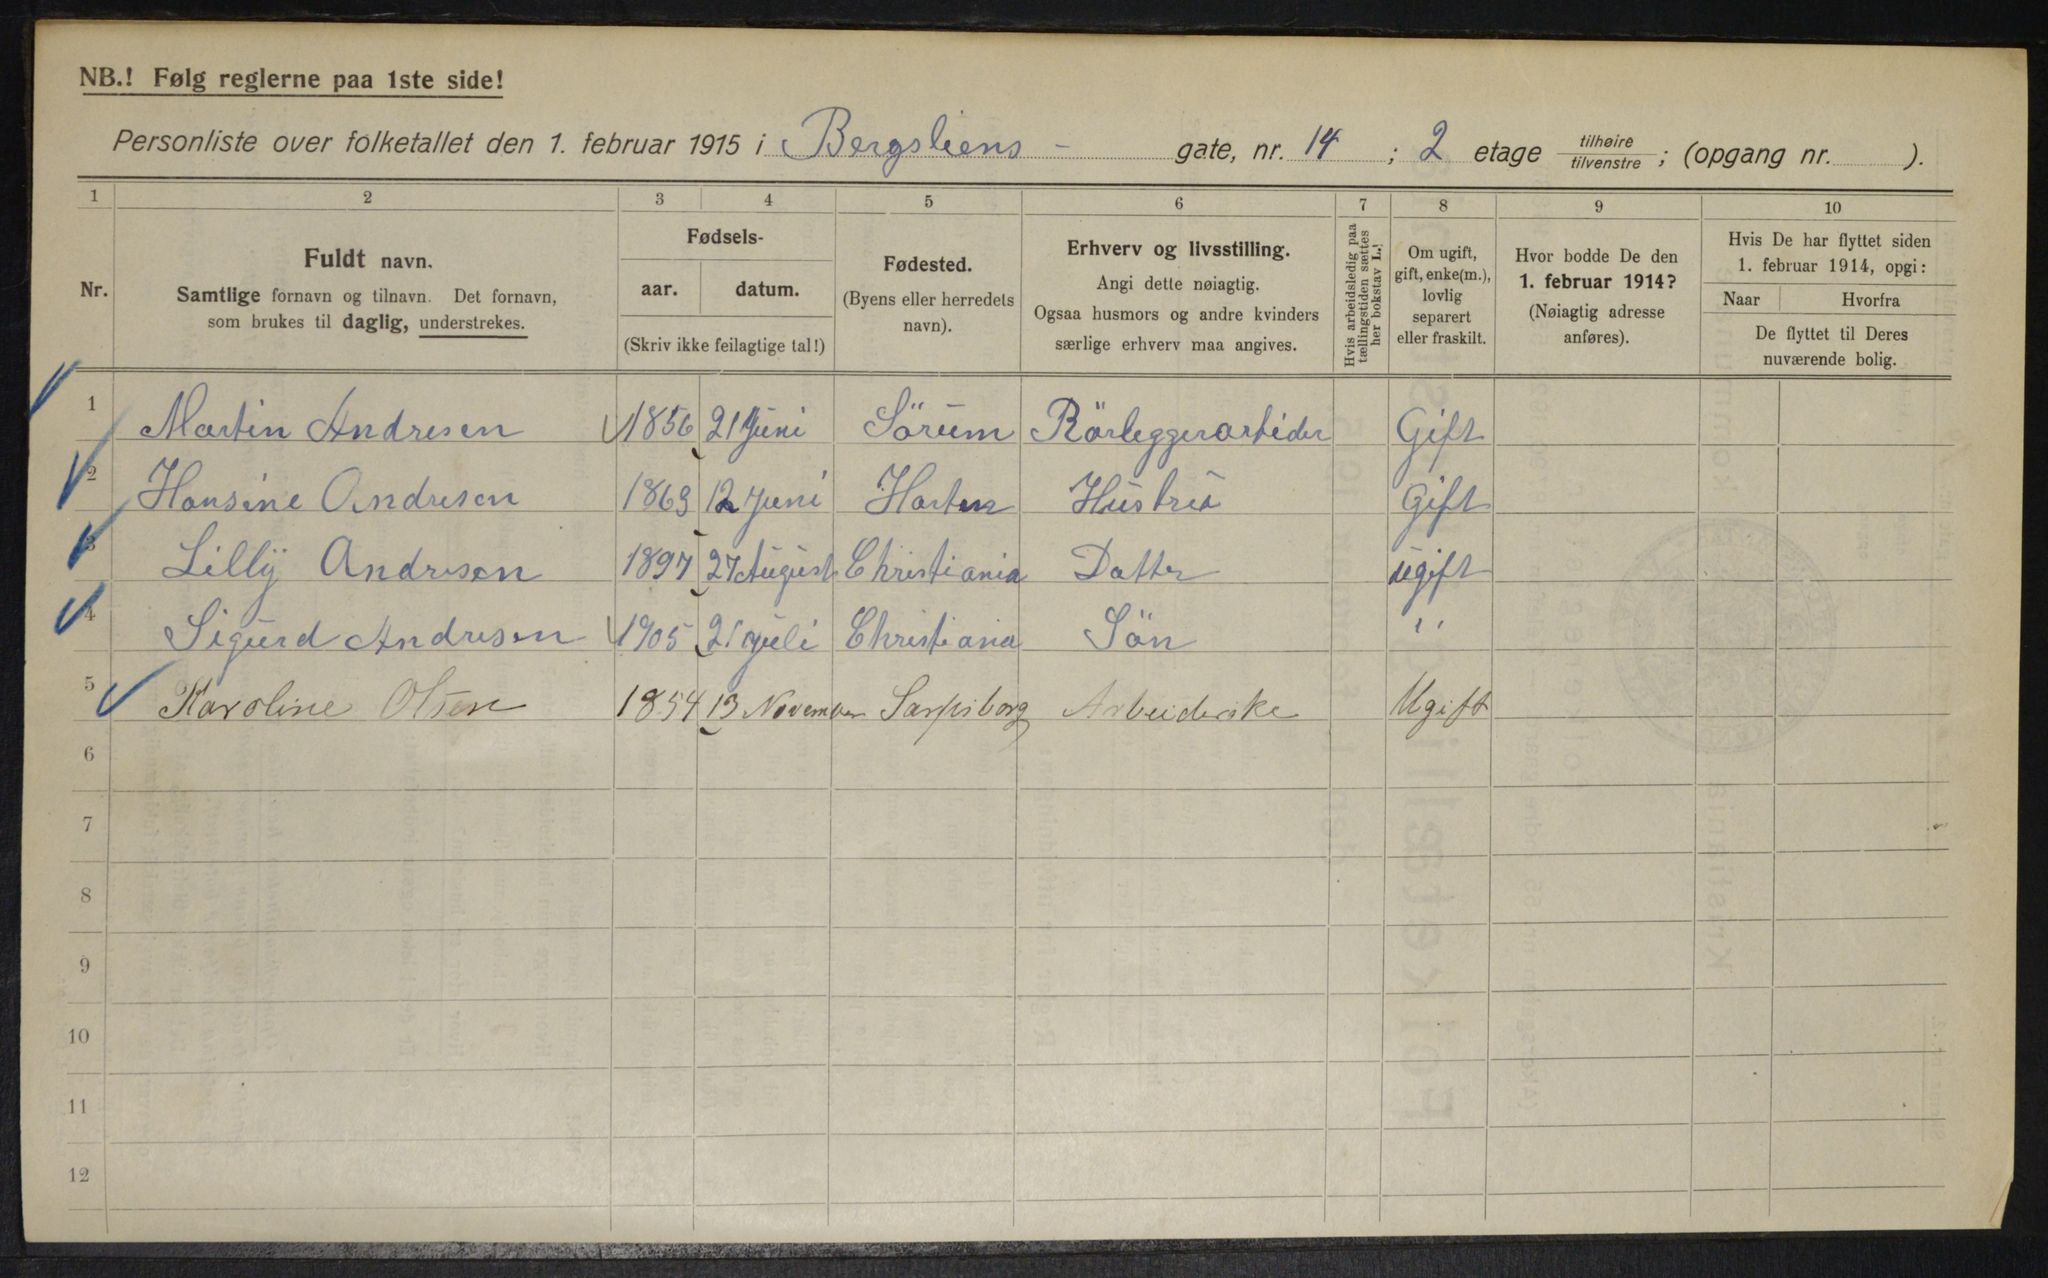 NB.! Følg reglerne paa 1ste side!
Personliste over folketallet den 1. februar 1915 i Bergsliens - gate, nr. 14 ; 2 etage tilhøire / tilvenstre ; (opgang nr. ).
1 2 3 4 5 6 7 8 9 10
Nr.
Fuldt navn.
Samtlige fornavn og tilnavn. Det fornavn,
som brukes til daglig, understrekes.
Fødsels-
aar. datum.
(Skriv ikke feilagtige tal!)
Fødested.
(Byens eller herredets
navn).
Erhverv og livsstilling.
Angi dette nøiagtig.
Ogsaa husmors og andre kvinders
særlige erhverv maa angives.
Hvis arbeidsledig paa
tællingstiden sættes
her bokstav L.!
Om ugift,
gift, enke(m.),
lovlig
separert
eller fraskilt.
Hvor bodde De den
1. februar 1914?
(Nøiagtig adresse
anføres).
Hvis De har flyttet siden
1. februar 1914, opgi:
Naar Hvorfra
De flyttet til Deres
nuværende bolig.
1 Martin Andresen 1856 21 Juni Sörum Rörleggerarbeider Gift
2 Hansine Andresen 1863 12 Juni Horten Hustru Gift
3 Lilly Andresen 1897 27 August Christiania Datter ugift
4 Sigurd Andresen 1905 21 juli Christiania Sön ''
5 Karoline Olsen 1854 13 November Sarpsborg Arbeiderske Ugift
6
7
8
9
10
11
12